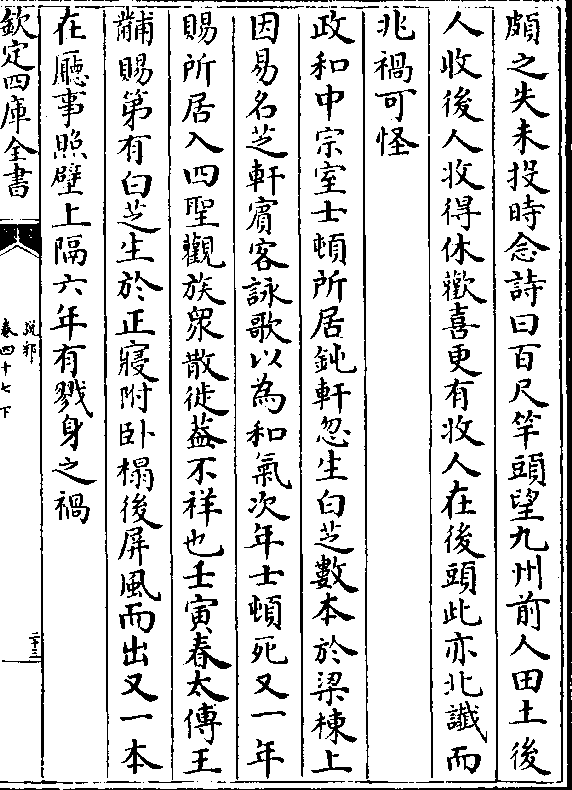 頗之失未投時念詩曰百尺竿頭望九州前人田土後
人收後人收得休歡喜更有收人在後頭此亦北讖而
兆禍可怪
政和中宗室士頓所居鈍軒忽生白芝數本於梁棟上
因易名芝軒賓客詠歌以為和氣次年士頓死又一年
賜所居入四聖觀族衆散徙葢不祥也壬寅春太傅王
黼賜第有白芝生於正寢附卧榻後屏風而出又一本
在廳事照壁上隔六年有戮身之禍
欽定四庫全書
說郛
卷四十七下
二十三